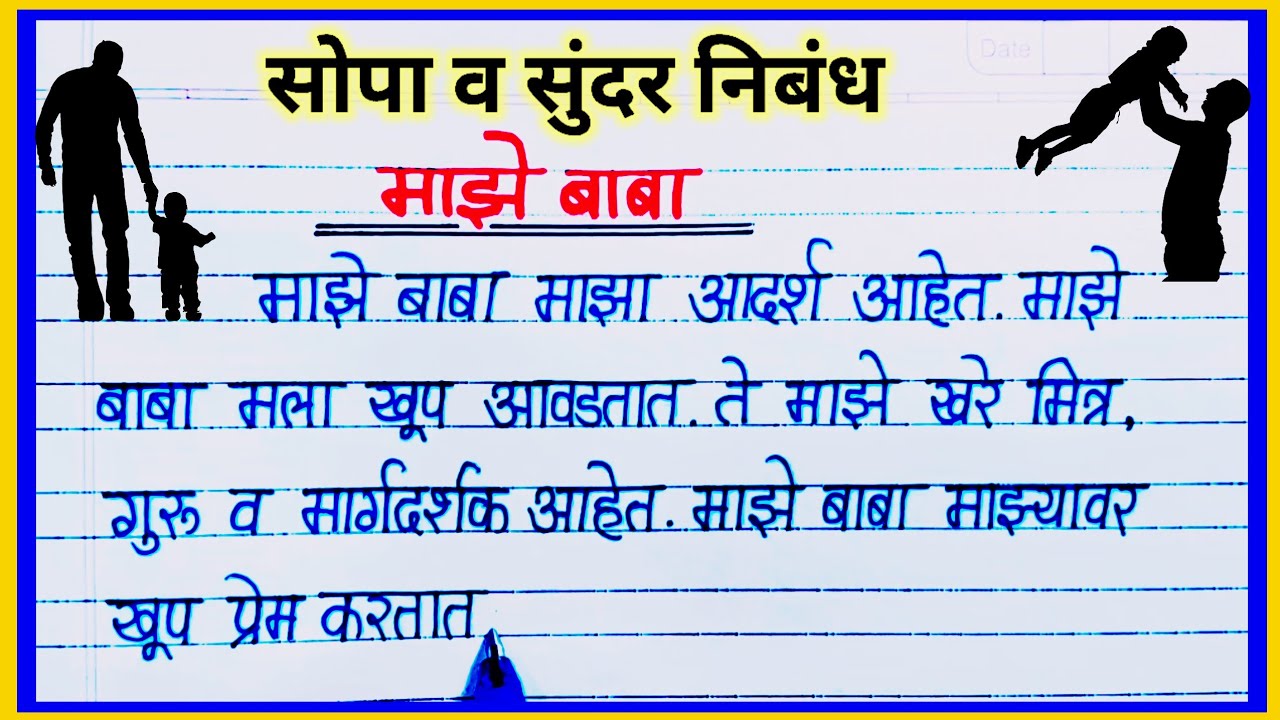 Date
सोपा व सुंदर निबंध
माझे बाबा
माझे बाबा माझा आदर्श आहेत. माझे
बाबा मला खूप आवडतात. ते माझे खरे मित्र,
गुरू व मार्गदर्शक आहेत. माझे बाबा माझ्यावर
खूप प्रेम करतात